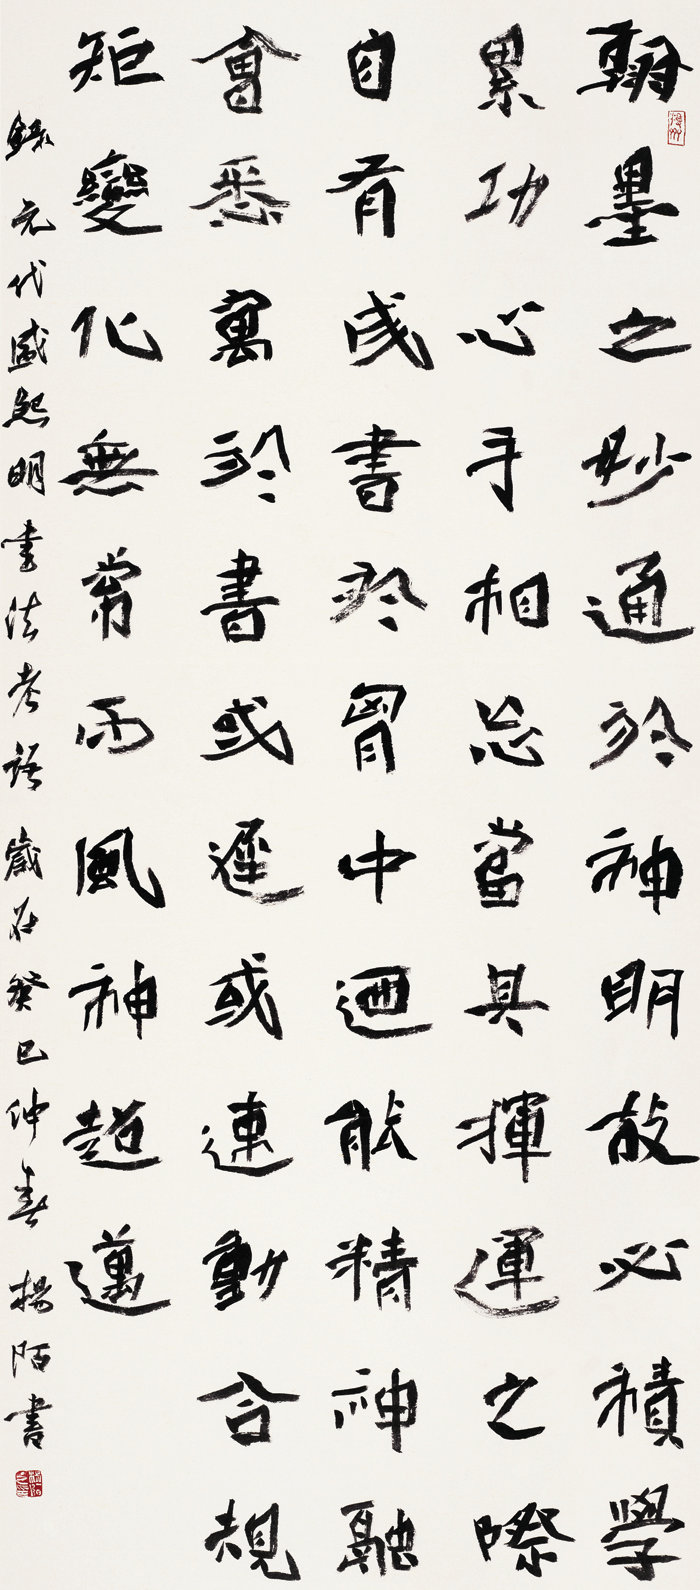 翰墨之妙通於神明故必積學
累功心手相忘當其揮運之際
自有成書於胷中迺能精神融
會悉寓於書或遲或速動合規
矩變化無常而風神超邁
錄元代盛熙明書法考語歲在癸巳仲春楊陌書